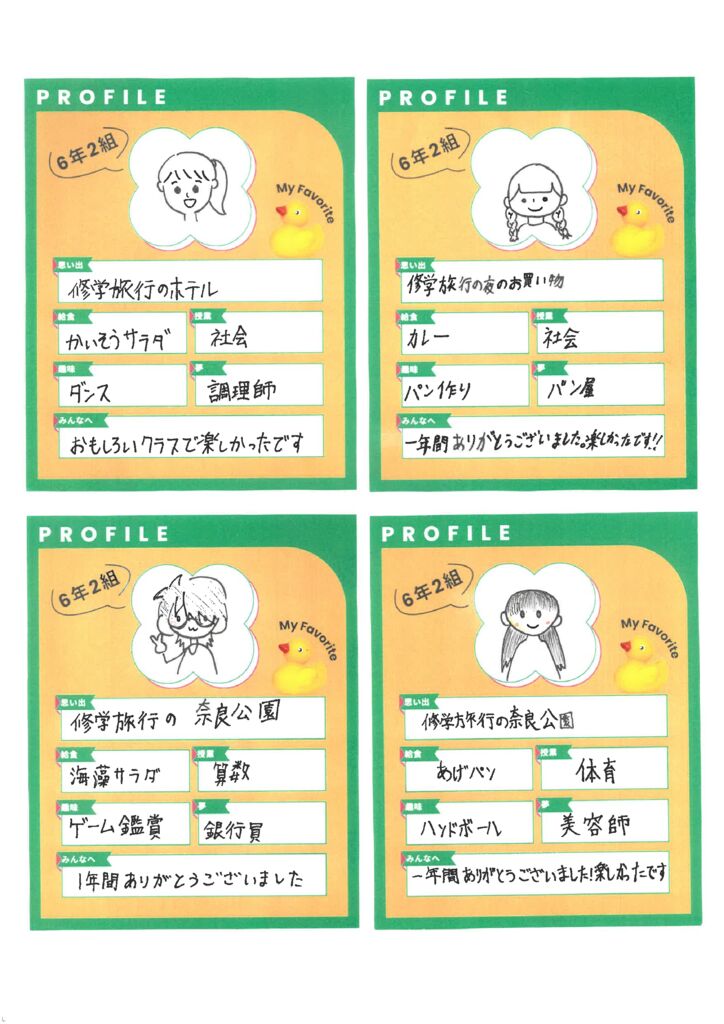 PROFILE
6年2組
My Favorite
思い出
修学旅行のホテル
給食
授業
かいそうサラダ
社会
趣味
夢
ダンス
調理師
みんなへ
おもしろいクラスで楽しかったです
PROFILE
6年2組
My Favorite
思い出
修学旅行の夜のお買い物
給食
授業
カレー
社会
趣味
夢
パン作り
パン屋
みんなへ
一年間ありがとうございました。楽しかったです!!
PROFILE
6年2組
My Favorite
思い出
修学旅行の 奈良公園
給食
授業
海藻サラダ
算数
趣味
夢
ゲーム鑑賞
銀行員
みんなへ
1年間ありがとうございました
PROFILE
6年2組
My Favorite
思い出
修学旅行の奈良公園
給食
授業
あげパン
体育
趣味
夢
ハンドボール
美容師
みんなへ
一年間ありがとうございました!楽しかったです